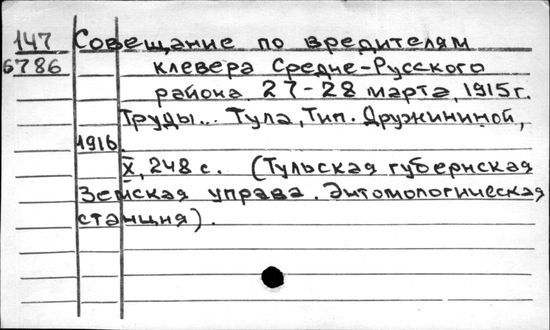 147 Совещание по вредителям
6786 клевера Средне-Русского
района 27-28 марта, 1915г.
Труды... Тула, Тип. Дружининой,
1916.
X, 248 с. (Тульская губернская
Земская управа. Энтомологическая
станция).